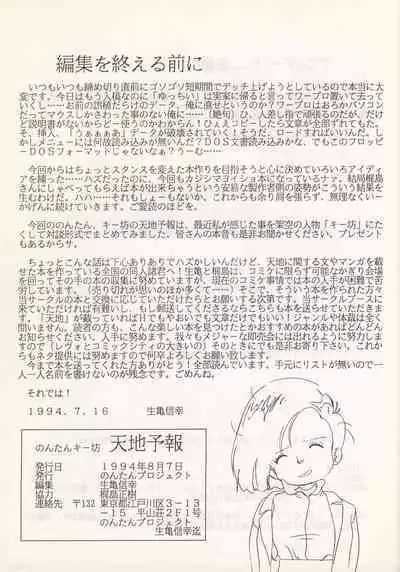 編集を終える前に
いつもいつも締め切り直前にゴソゴソ短期間でデッチ上げようとしているので本当に大
変です。今日はもう入稿なのに「ゆっちい」は実家に帰ると言ってワープロ置いて去って
いくし……お前の誤植だらけのデータ、俺に直せというのか?ワープロはおろかパソコン
だってマウスしかさわった事のない俺に…(絶句)ひ、人差し指で頑張るのだが、だけ
ど説明書がないからどー使うのかわからん!ひぇぇ、コピーしたら文章が全部ずれてもた。
そ、挿入、「うぁぁぁあ」データが破壊されていく!そうだ、ロードすればいいんだ。し
かしメニューには何故読み込みが無いんだ?DOS文書読み込みか、でもこのフロッピ
-DOSフォーマットじゃないなぁ?うーむ……
今回からはちょっとスタンスを変えた本作りを目指そうと心に決めていろいろアイディ
アを練った……ハズだったのに、今回もカンシンマヨイショ本になっているナァ。結局梶島
さんにしゃべってもらえば本が出来ちゃうという安易な製作者側の姿勢がこういう結果を
生むわけだ。ハハ…それもしょーもないか。これからも余り肩を張らず、無理なくいー
かげんに続けていきます。ご愛読のほどを。
今回ののんたん、キー坊の天地予報は、最近私が感じた事を架空の人物「キー坊」にた
くして対談形式でまとめてみました。皆さんの本音も是非お聞かせください。プレゼント
もあるからサ。
ちょっとこんな話は下心ありありでハズかしいんだけど、天地に関する文やマンガを載
せた本を作っている全国の同人諸君へ!生亀と梶島は、コミケに限らず可能なかぎり会場
を回ってその手の本の収集に努めていますが、現在のコミケ事情では本の入手が困難で苦
労しています。(売り切れが早いのはほか多くて……)できれば、これらの本を作られた方々
当サークルの本と交換に応じていただけたらとお願いする次第です。当サークルブースに
来ていただければ有難いし、もし郵送してくださるならこちらいも本を送らせていただきま
す。「天地」が載っていればH!でもやおいでも文章だけでもいい!ジャンルや体裁は全く
問いません。読者の方も、こんな楽しい本を見つけたとかおすすめの本があればどんどん
お知らせください。入手に努めます。我々もメジャーな即売会には出れるように努力しま
すので(レヴォとコミックシティの大きいの)そのときにでも是非お寄り下さい。これか
らもネタ提供には努めますので何卒よろしくお願い致します。
今まで本を送ってくれた方ありがとう!全部読んでいます。手元にリストが無いので一
人一人名前を書けないのが残念です。ごめんね。
それでは!
1994.7.16 生亀信幸
のんたんキー坊 天地予報
発行日 1994年8月7日
発行 のんたんプロジェクト
編集 生亀信幸
協力 梶島正樹
連絡先 〒132 東京都江戸川区3-13
-15 平山荘2F1号
のんたんプロジェクト
生亀信幸迄